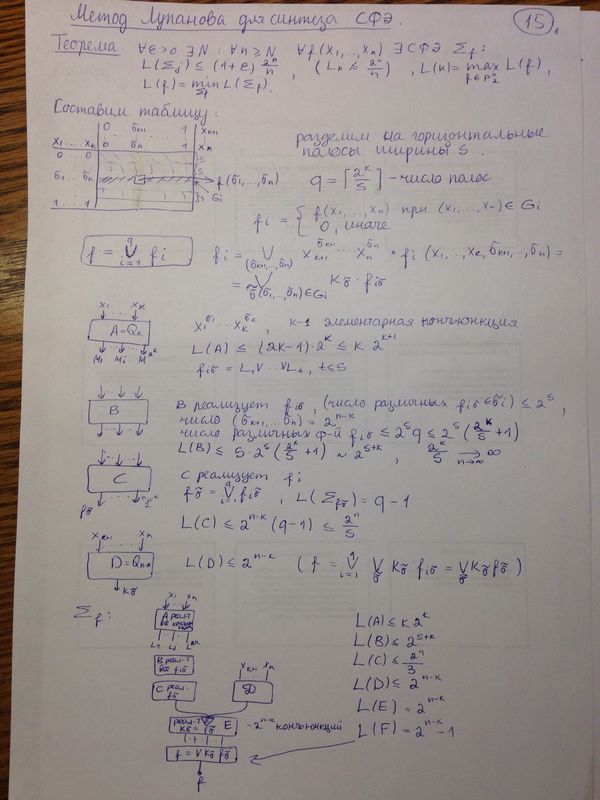 Метод Лупанова для синтеза СФЭ.
15
Теорема ∀ε>0 ∃N : ∀n≥N ∀f(x₁,…,xₙ) ∃ СФЭ Σ_f :
L(Σ_f) ≤ (1+ε) 2ⁿ/n , (Lₙ ≲ 2ⁿ/n) , L(n) = max_{f∈P₂ⁿ} L(f),
L(f) = min_Σ L(Σ_f).
Составим таблицу:
0 σₖ₊₁ 1 xₖ₊₁
x₁ … xₖ 0 σₙ 1 xₙ
0 0
σ₁ … σₖ
1 1
f(σ₁,…,σₙ)
Gᵢ
разделим на горизонтальные
полосы ширины s.
q = ⌈2ᵏ/s⌉ - число полос
fᵢ = { f(x₁,…,xₙ) при (x₁,…,xₙ)∈Gᵢ
0, иначе
f = ⋁_{i=1}^{q} fᵢ
fᵢ = ⋁_{(σₖ₊₁,…,σₙ)} xₖ₊₁^{σₖ₊₁} … xₙ^{σₙ} · fᵢ (x₁,…,xₖ,σₖ₊₁,…,σₙ) =
= ⋁_{σ̃(σ₁,…,σₙ)∈Gᵢ} K_σ̃ · f_{iσ̃}
x₁ xₖ
A=Qₖ
M₁ Mᵢ M_{2ᵏ}
x₁^{σ₁} … xₖ^{σₖ} , k-1 элементарная конъюнкция
L(A) ≤ (2k-1)·2ᵏ ≤ k·2ᵏ⁺¹
f_{iσ̃} = L₁∨ … ∨Lₜ , t≤s
B
B реализует f_{iσ̃} , (число различных f_{iσ̃}∈σ̃i) ≤ 2ˢ,
число (σₖ₊₁,…,σₙ) = 2ⁿ⁻ᵏ
число различных ф-й f_{iσ̃} ≤ 2ˢq ≤ 2ˢ(2ᵏ/s +1)
L(B) ≤ s·2ˢ(2ᵏ/s +1) ~ 2ˢ⁺ᵏ , 2ᵏ/s → ∞ n→∞
C
f_σ̃ 2ⁿ⁻ᵏ
C реализует fᵢ
f_σ̃ = ⋁_{i=1}^{q} f_{iσ̃} , L(Σ_{f_σ̃}) = q-1
L(C) ≤ 2ⁿ⁻ᵏ (q-1) ≤ 2ⁿ/s
xₖ₊₁ xₙ
D=Qₙ₋ₖ
K_σ̃
L(D) ≤ 2ⁿ⁻ᵏ ( f = ⋁_{i=1}^{q} ⋁_σ̃ K_σ̃ · f_{iσ̃} = ⋁_σ̃ K_σ̃ f_σ̃ )
Σ_f :
x₁ xₙ
A реал-т
все конъюнкции
L₁ Lᵢ L_{2ᵏ}
B реал-т
все f_{iσ̃}
C реал.
f_σ̃
xₖ₊₁ xₙ
D
реал-т
K_σ̃ f_σ̃
E
- 2ⁿ⁻ᵏ конъюнкций
f = ⋁ K_σ̃ f_σ̃
f
L(A) ≤ k 2ᵏ
L(B) ≤ 2ˢ⁺ᵏ
L(C) ≤ 2ⁿ/3
L(D) ≤ 2ⁿ⁻ᵏ
L(E) = 2ⁿ⁻ᵏ
L(F) = 2ⁿ⁻ᵏ - 1